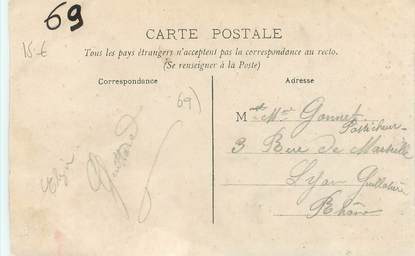 69
15 €
CARTE POSTALE
Tous les pays étrangers n'acceptent pas la correspondance au recto.
(Se renseigner à la Poste)
Correspondance
Adresse
69)
M et Mme Gonnet
3 Rue de Marseille
Lyon Guillotière
Rhône